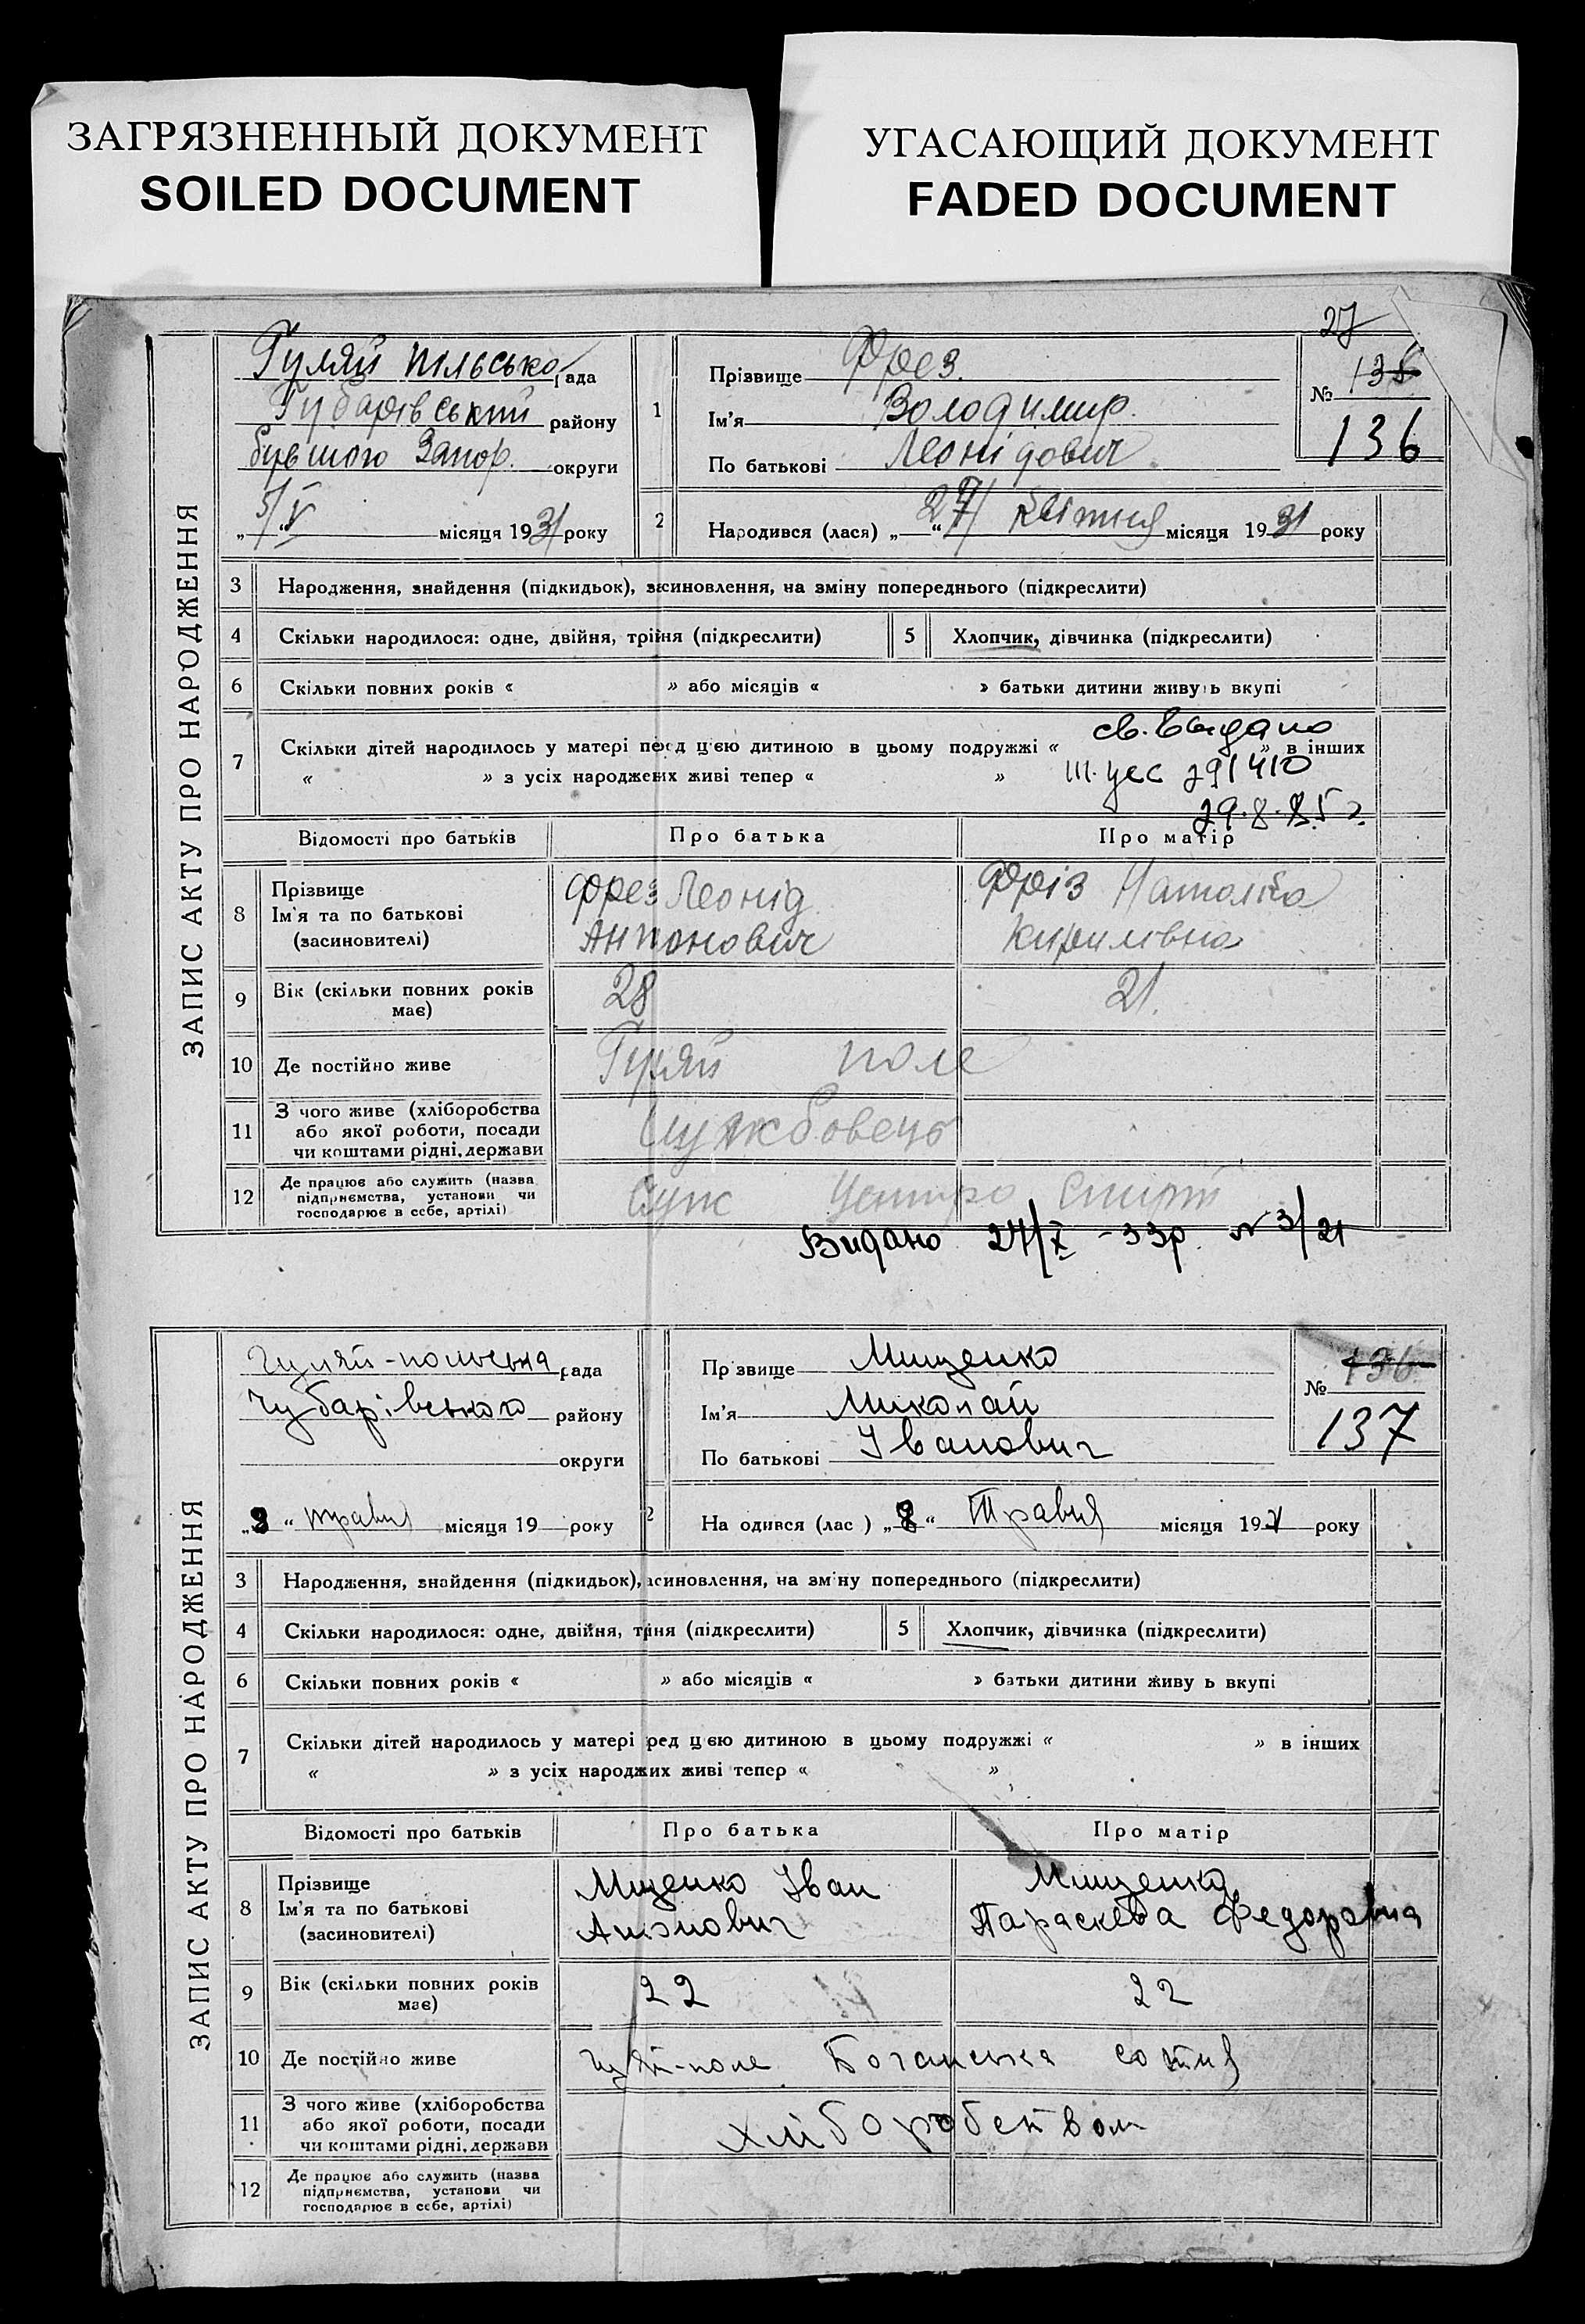 ЗАГРЯЗНЕННЫЙ ДОКУМЕНТ
SOILED DOCUMENT
УГАСАЮЩИЙ ДОКУМЕНТ
FADED DOCUMENT
27
ЗАПИС АКТУ ПРО НАРОДЖЕННЯ
Гуляй пільсько рада
Чубарівський району
бувшого Запор. округи
5/V місяця 1931 року
1
Прізвище Фрез.
Ім'я Володимир.
По батькові Леонідович
№ 135
136
2 Народився (лася) „27“ Квітня місяця 1931 року
3 Народження, знайдення (підкидьок), засиновлення, на зміну попереднього (підкреслити)
4 Скільки народилося: одне, двійня, трійня (підкреслити) 5 Хлопчик, дівчинка (підкреслити)
6 Скільки повних років « » або місяців « » батьки дитини живуть вкупі
св. выдано
7 Скільки дітей народилось у матері перед цією дитиною в цьому подружжі « » в інших
« » з усіх народжених живі тепер « »
291410
29.8.85 г.
Відомості про батьків Про батька Про матір
8 Прізвище
Ім'я та по батькові
(засиновителі)
Фрез Леонід
Антонович
Фріз Наталка
Кирилівна
9 Вік (скільки повних років має) 28 21.
10 Де постійно живе Гуляй поле
11 З чого живе (хліборобства
або якої роботи, посади
чи коштами рідні, держави
Службовець
12 Де працює або служить (назва
підприємства, установи чи
господарює в себе, артілі)
Служ Центро Спирт
Видано 24/X -33р. N 3/21
ЗАПИС АКТУ ПРО НАРОДЖЕННЯ
Гуляй-польська рада
Чубарівського району
округи
„8“ травня місяця 19 року
Прізвище Мищенко
Ім'я Миколай
По батькові Іванович
№ 136
137
2 На одився (лас ) „8“ Травня місяця 19 року
3 Народження, знайдення (підкидьок), засиновлення, на зміну попереднього (підкреслити)
4 Скільки народилося: одне, двійня, трійня (підкреслити) 5 Хлопчик, дівчинка (підкреслити)
6 Скільки повних років « » або місяців « » батьки дитини живу ь вкупі
7 Скільки дітей народилось у матері перед цією дитиною в цьому подружжі « » в інших
« » з усіх народжених живі тепер « »
Відомості про батьків Про батька Про матір
8 Прізвище
Ім'я та по батькові
(засиновителі)
Мищенко Іван
Антонович
Мищенко
Параскева Федоровна
9 Вік (скільки повних років має) 22 22
10 Де постійно живе Гуляй-поле Боганська сотня
11 З чого живе (хліборобства
або якої роботи, посади
чи коштами рідні, держави
хліборобством
12 Де працює або служить (назва
підприємства, установи чи
господарює в себе, артілі)